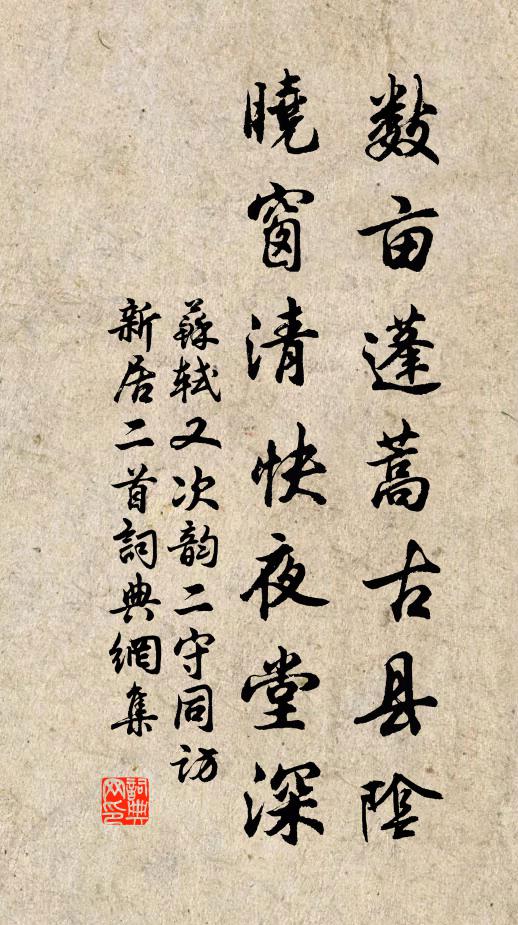 数亩蓬蒿古县陰
曉窗清快夜堂深
蘇轼又次韵二守同访
新居二首詞典網集
詞典网印